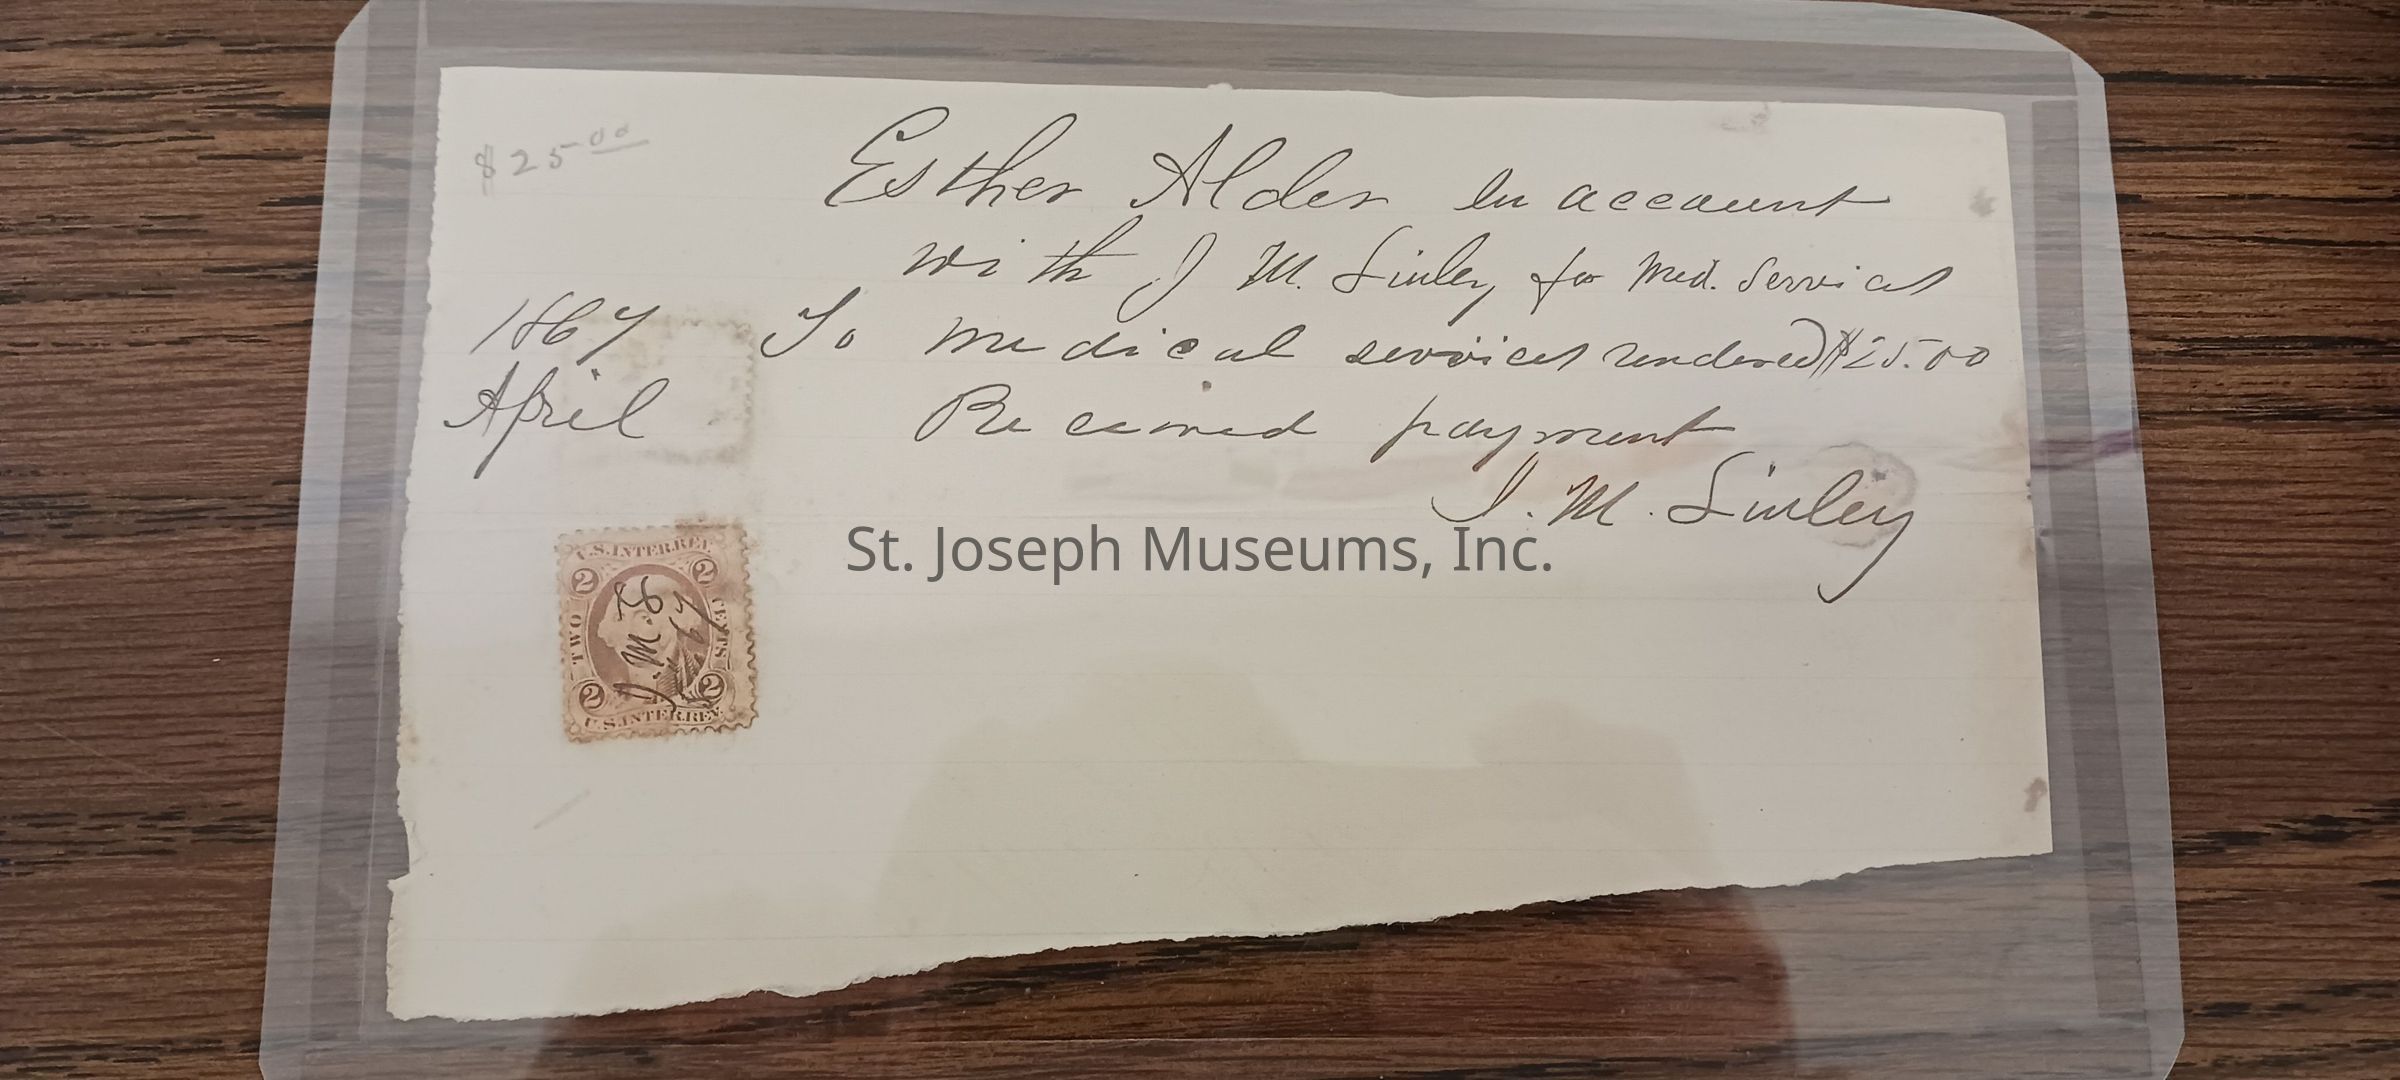 $25.00
Esther Alder In account
with J M. Sinley for Med. Services
1867 To medical services rendered $25.00
April Received payment
J. M. Sinley
St. Joseph Museums, Inc.
U.S. INTER. REV.
2 2
TWO CENTS
J. M. S
67
2 2
U.S. INTER. REV.